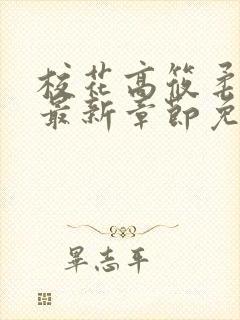 校花高筱柔
最新章節免
畢志平